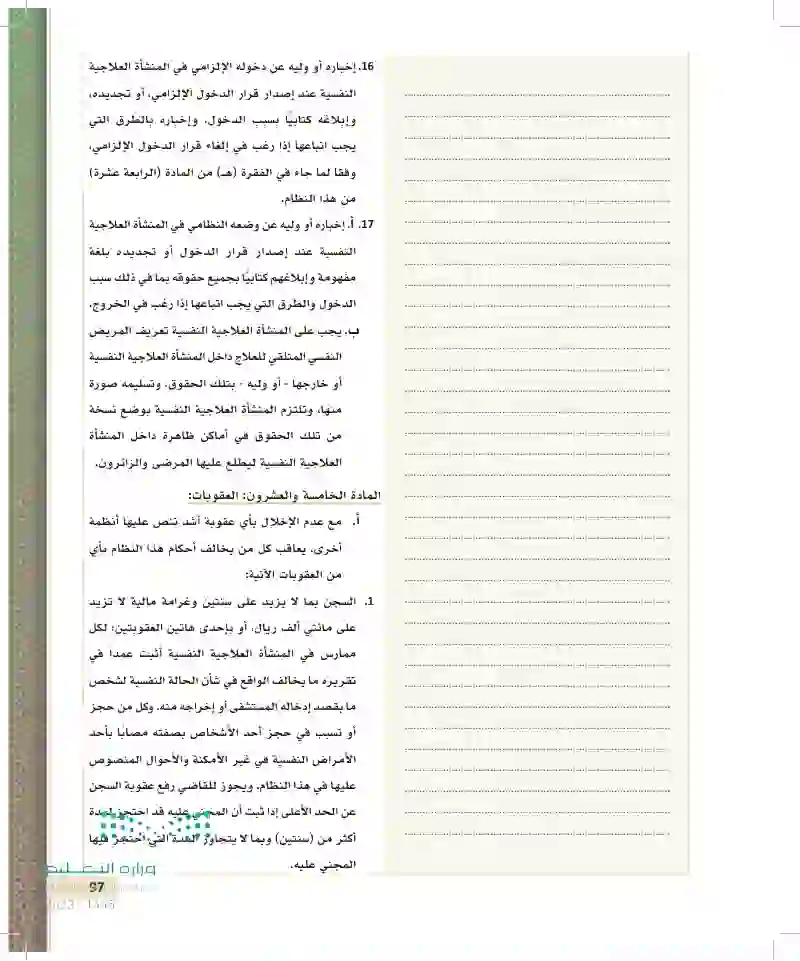 16. إخباره أو وليه عن دخوله الإلزامي في المنشأة العلاجية
النفسية عند إصدار قرار الدخول الإلزامي، أو تجديده،
وإبلاغه كتابيًا بسبب الدخول، وإخباره بالطرق التي
يجب اتباعها إذا رغب في إلغاء قرار الدخول الإلزامي،
وفقا لما جاء في الفقرة (هـ) من المادة (الرابعة عشرة)
من هذا النظام.
17. أ. إخباره أو وليه عن وضعه النظامي في المنشأة العلاجية
النفسية عند إصدار قرار الدخول أو تجديده بلغة
مفهومة وإبلاغهم كتابيًا بجميع حقوقه بما في ذلك سبب
الدخول والطرق التي يجب اتباعها إذا رغب في الخروج.
ب. يجب على المنشأة العلاجية النفسية تعريف المريض
النفسي المتلقي للعلاج داخل المنشأة العلاجية النفسية
أو خارجها - أو وليه - بتلك الحقوق، وتسليمه صورة
منها، وتلتزم المنشأة العلاجية النفسية بوضع نسخة
من تلك الحقوق في أماكن ظاهرة داخل المنشأة
العلاجية النفسية ليطلع عليها المرضى والزائرون.
المادة الخامسة والعشرون: العقوبات:
أ. مع عدم الإخلال بأي عقوبة أشد تنص عليها أنظمة
أخرى، يعاقب كل من يخالف أحكام هذا النظام بأي
من العقوبات الآتية:
1. السجن بما لا يزيد على سنتين وغرامة مالية لا تزيد
على مائتي ألف ريال، أو بإحدى هاتين العقوبتين؛ لكل
ممارس في المنشأة العلاجية النفسية أثبت عمدا في
تقريره ما يخالف الواقع في شأن الحالة النفسية لشخص
ما بقصد إدخاله المستشفى أو إخراجه منه. وكل من حجز
أو تسبب في حجز أحد الأشخاص بصفته مصابًا بأحد
الأمراض النفسية في غير الأمكنة والأحوال المنصوص
عليها في هذا النظام. ويجوز للقاضي رفع عقوبة السجن
عن الحد الأعلى إذا ثبت أن المجني عليه قد احتجز لمدة
أكثر من (سنتين) وبما لا يتجاوز المدة التي احتجز فيها
المجني عليه.
وزارة التعليم
97